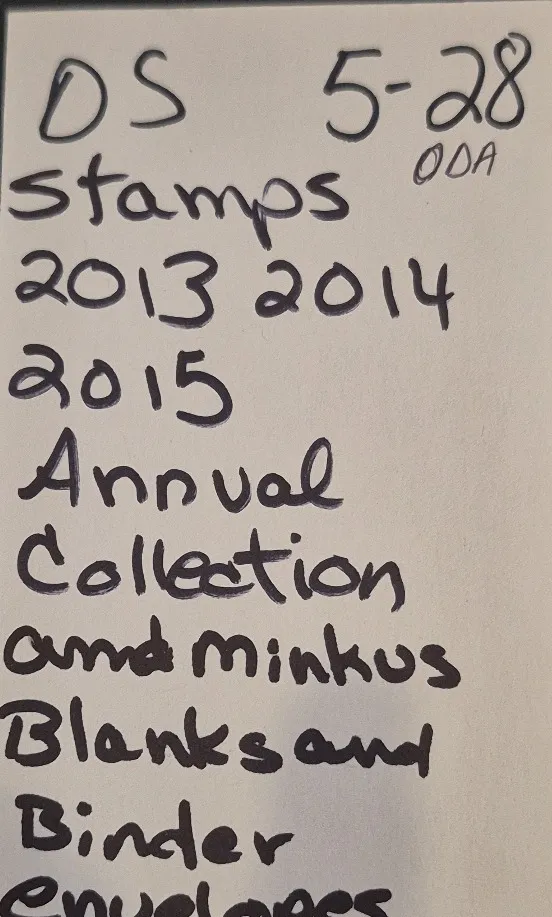 DS 5-28
ODA
Stamps
2013 2014
2015
Annual
Collection
and minkus
Blanks and
Binder
envelopes